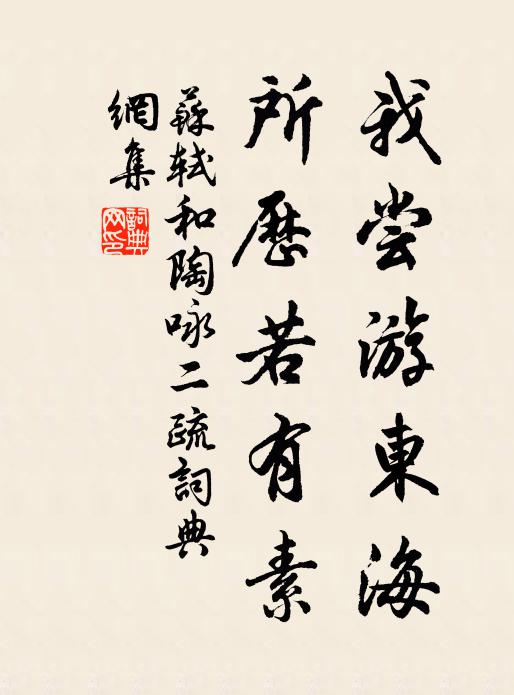 我尝游東海
所歷若有素
蘇軾和陶咏二疏詞典
網集
詞典
网印